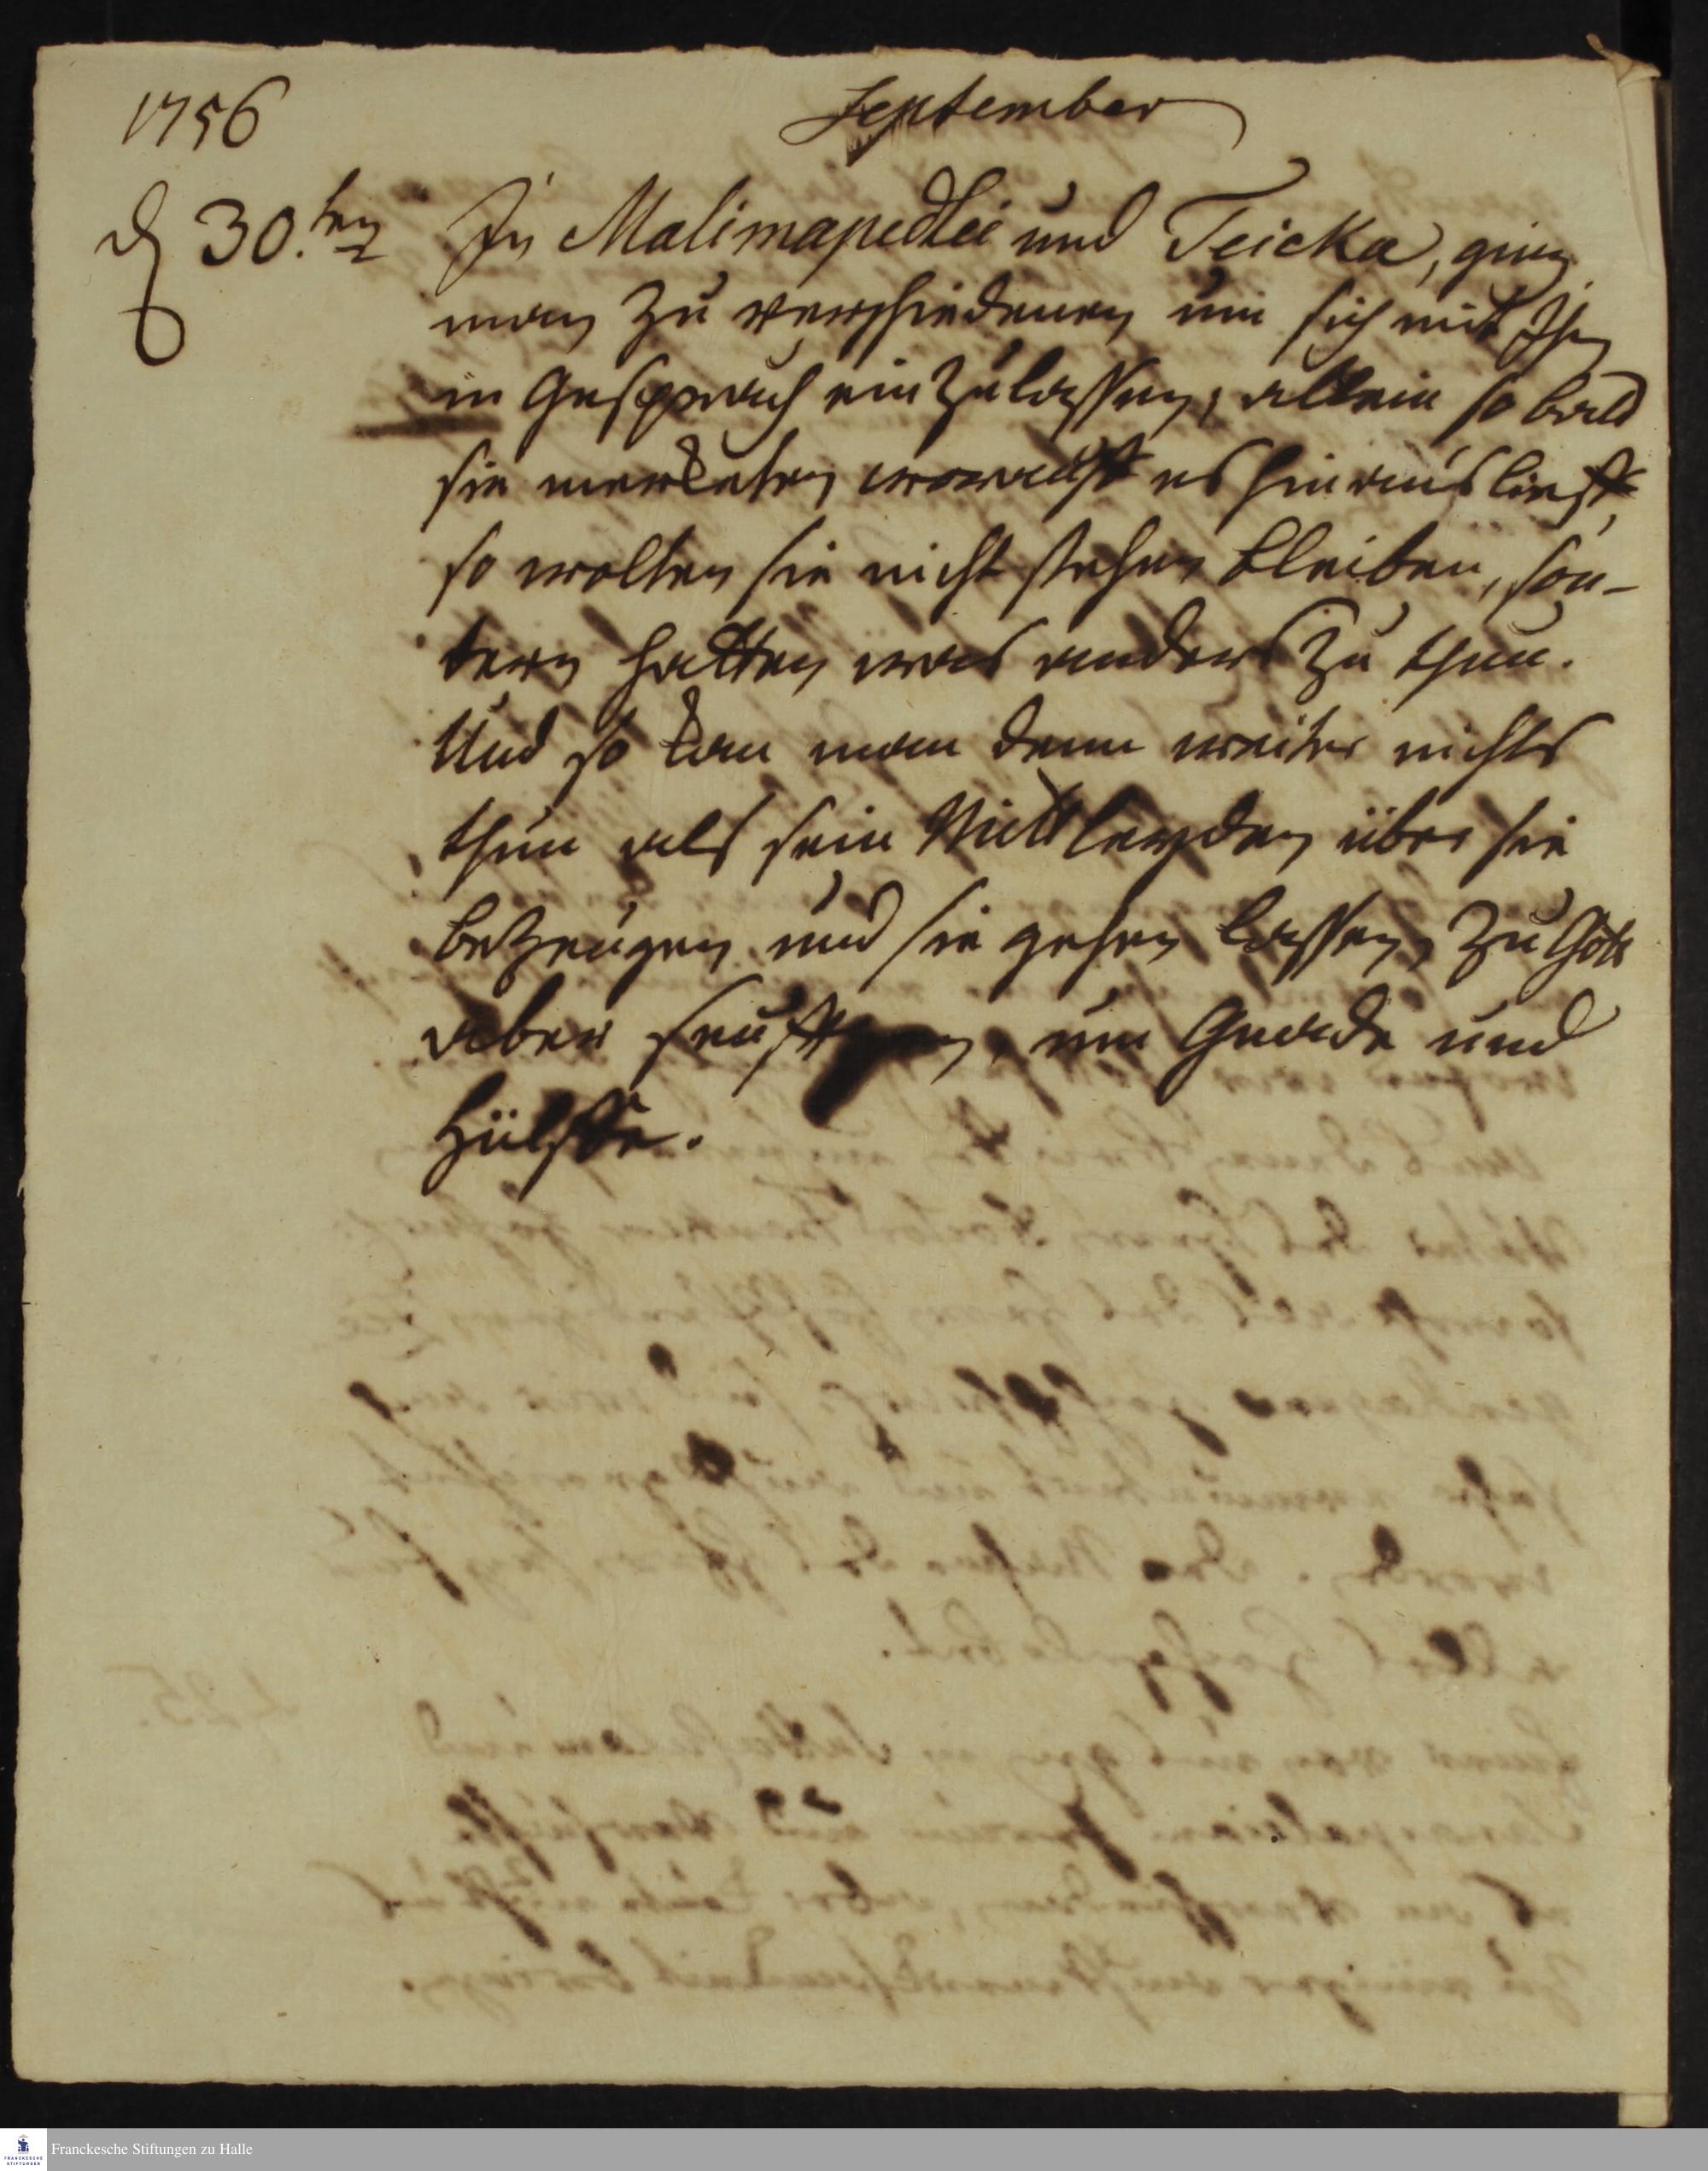 1756
September
d 30.ten
In Malimapedlei und Teicka, ging
man zu verschiedenen um sich mit Ihn
in Gespräch einzulassen, allein so bald
sie merckten worauf es hinaus lieff,
so wolten sie nicht stehen bleiben, son-
tern hatten was anders zu thun.
Und so kan man denn weiter nichts
thun als sein Mittleyden über sie
bezeugen und sie gehen lassen, zu Gott
aber seufftzen, um Gnade und
Hülffe.
Franckesche Stiftungen zu Halle
FRANCKESCHE
STIFTUNGEN